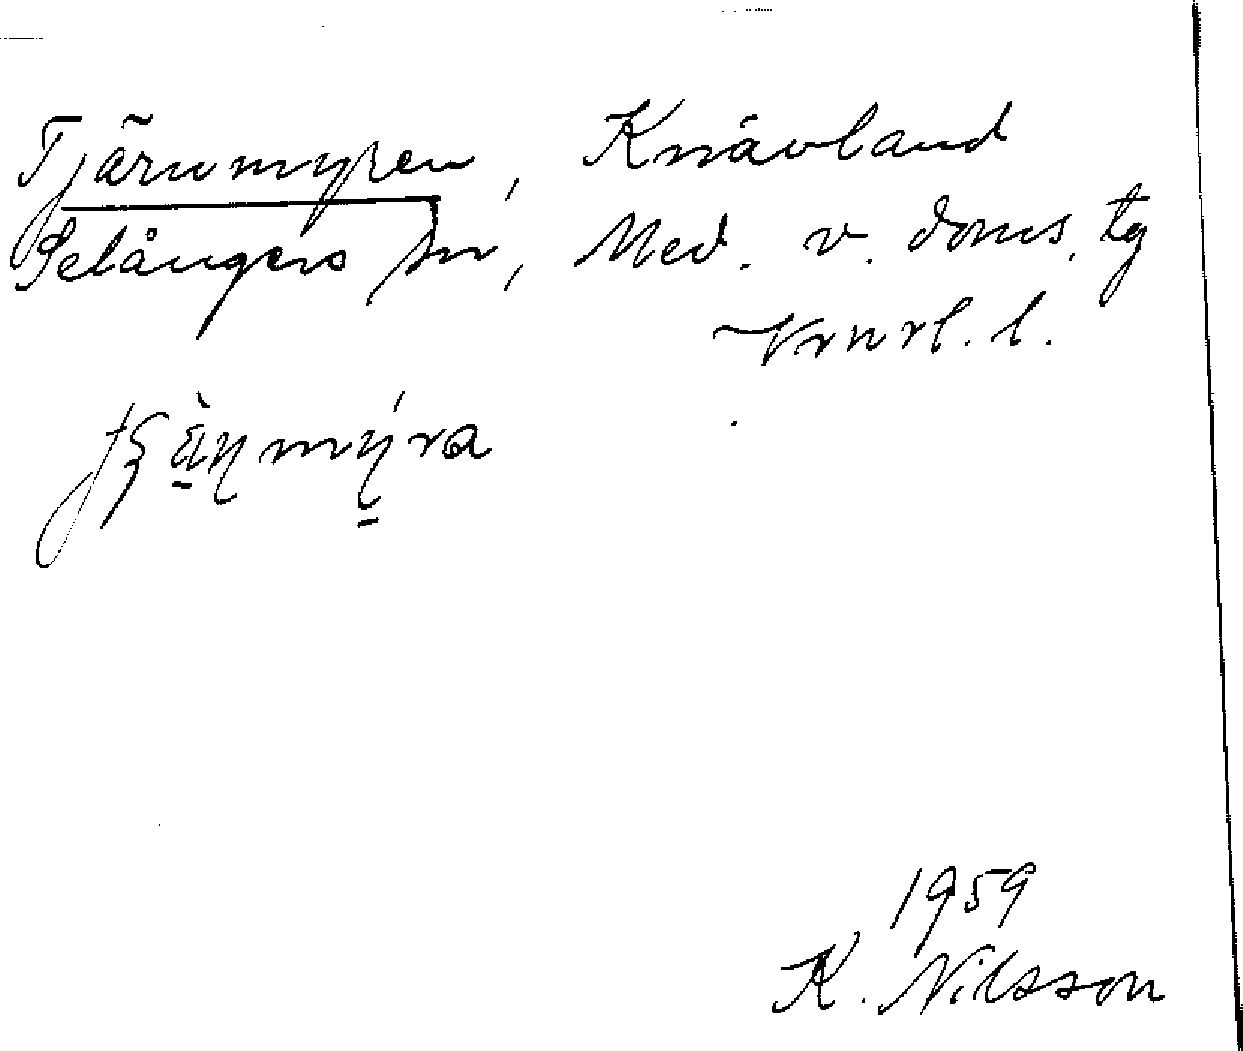 Tjärnmyren, Knävland
Selångers sn, Med. v. doms. tg
Vrnrl. l.
1959
K. Nilsson